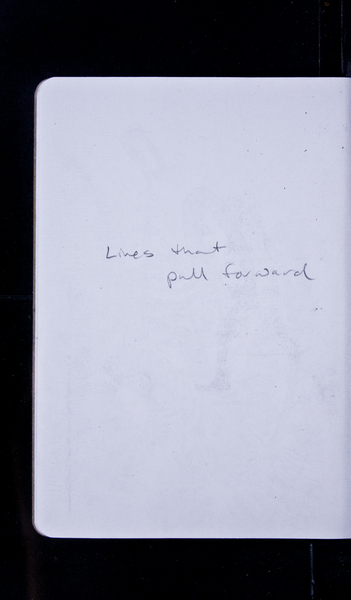 Lines that
pull forward